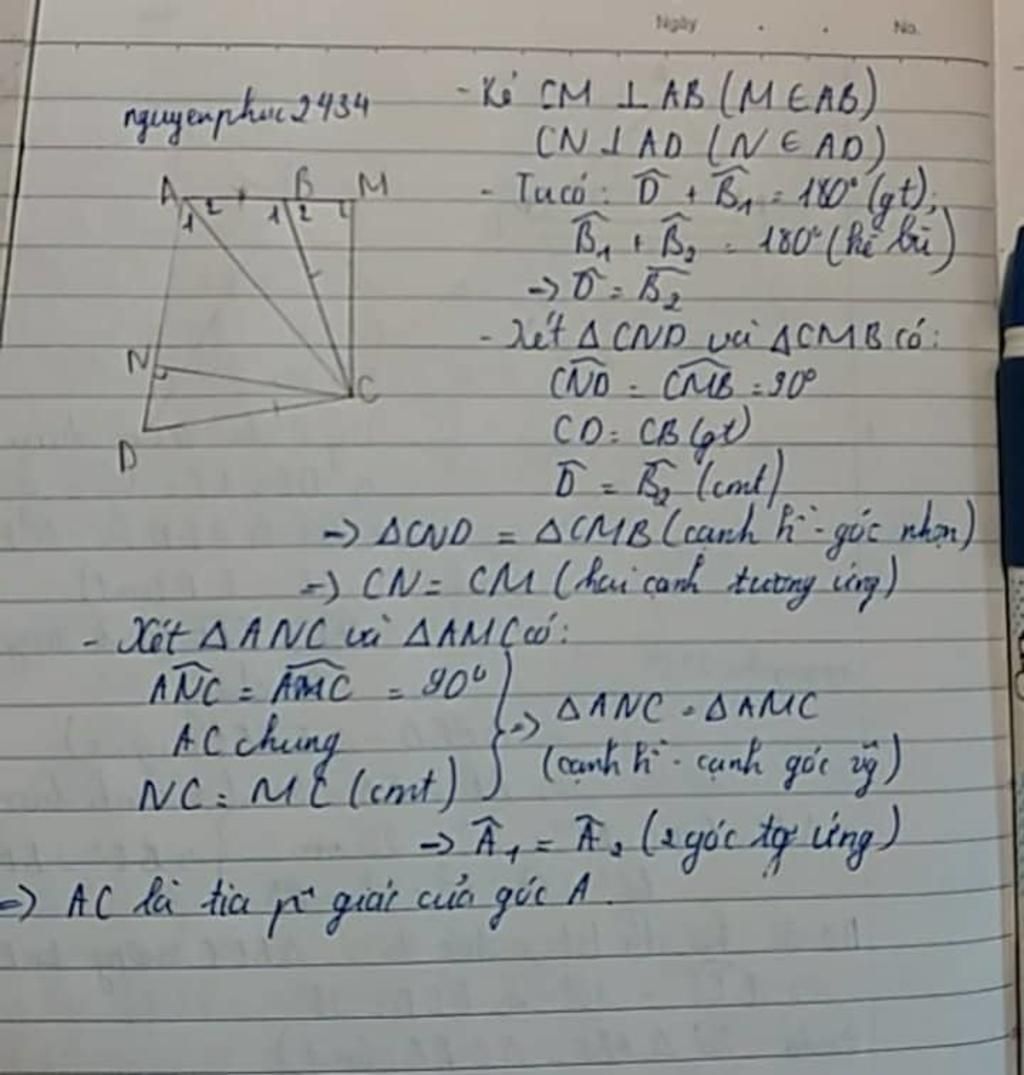 Ngày . . No.
nguyenphuc2434
- Kẻ CM ⊥ AB (M ∈ AB)
CN ⊥ AD (N ∈ AD)
- Ta có: D̂ + B̂₁ = 180° (gt),
B̂₁ + B̂₂ = 180° (kề bù)
→ D̂ = B̂₂
- Xét △CND và △CMB có:
CND̂ = CMB̂ = 90°
CD = CB (gt)
D̂ = B̂₂ (cmt)
→ △CND = △CMB (cạnh h` - góc nhọn)
→ CN = CM (hai cạnh tương ứng)
- Xét △ANC và △AMC có:
ANĈ = AMĈ = 90°
AC chung
NC = MC (cmt)
⇒ △ANC = △AMC
(cạnh h` - cạnh góc vg)
→ Â₁ = Â₂ (2 góc tg ứng)
⇒ AC là tia p` giác của góc A.
A 1 2 B 1 2 M 1
N
C
D